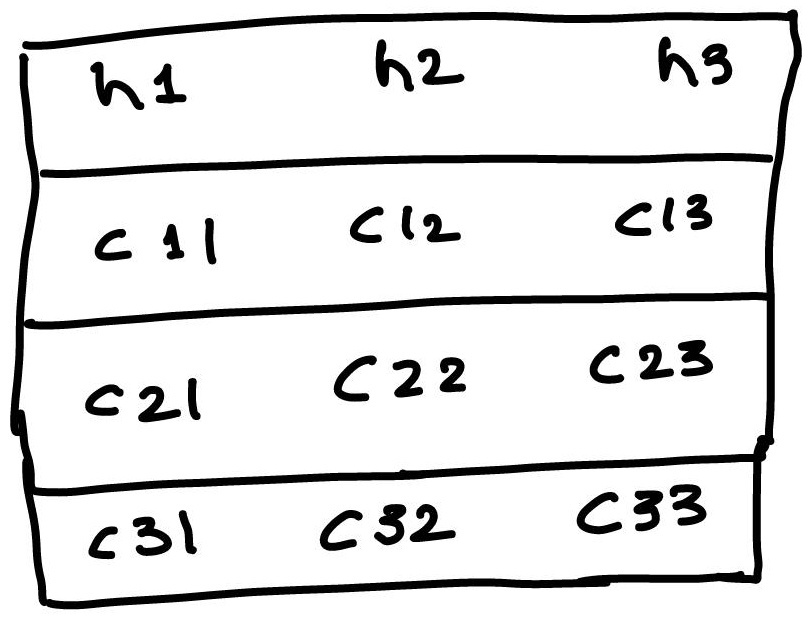 h1 h2 h3
c11 c12 c13
c21 c22 c23
c31 c32 c33